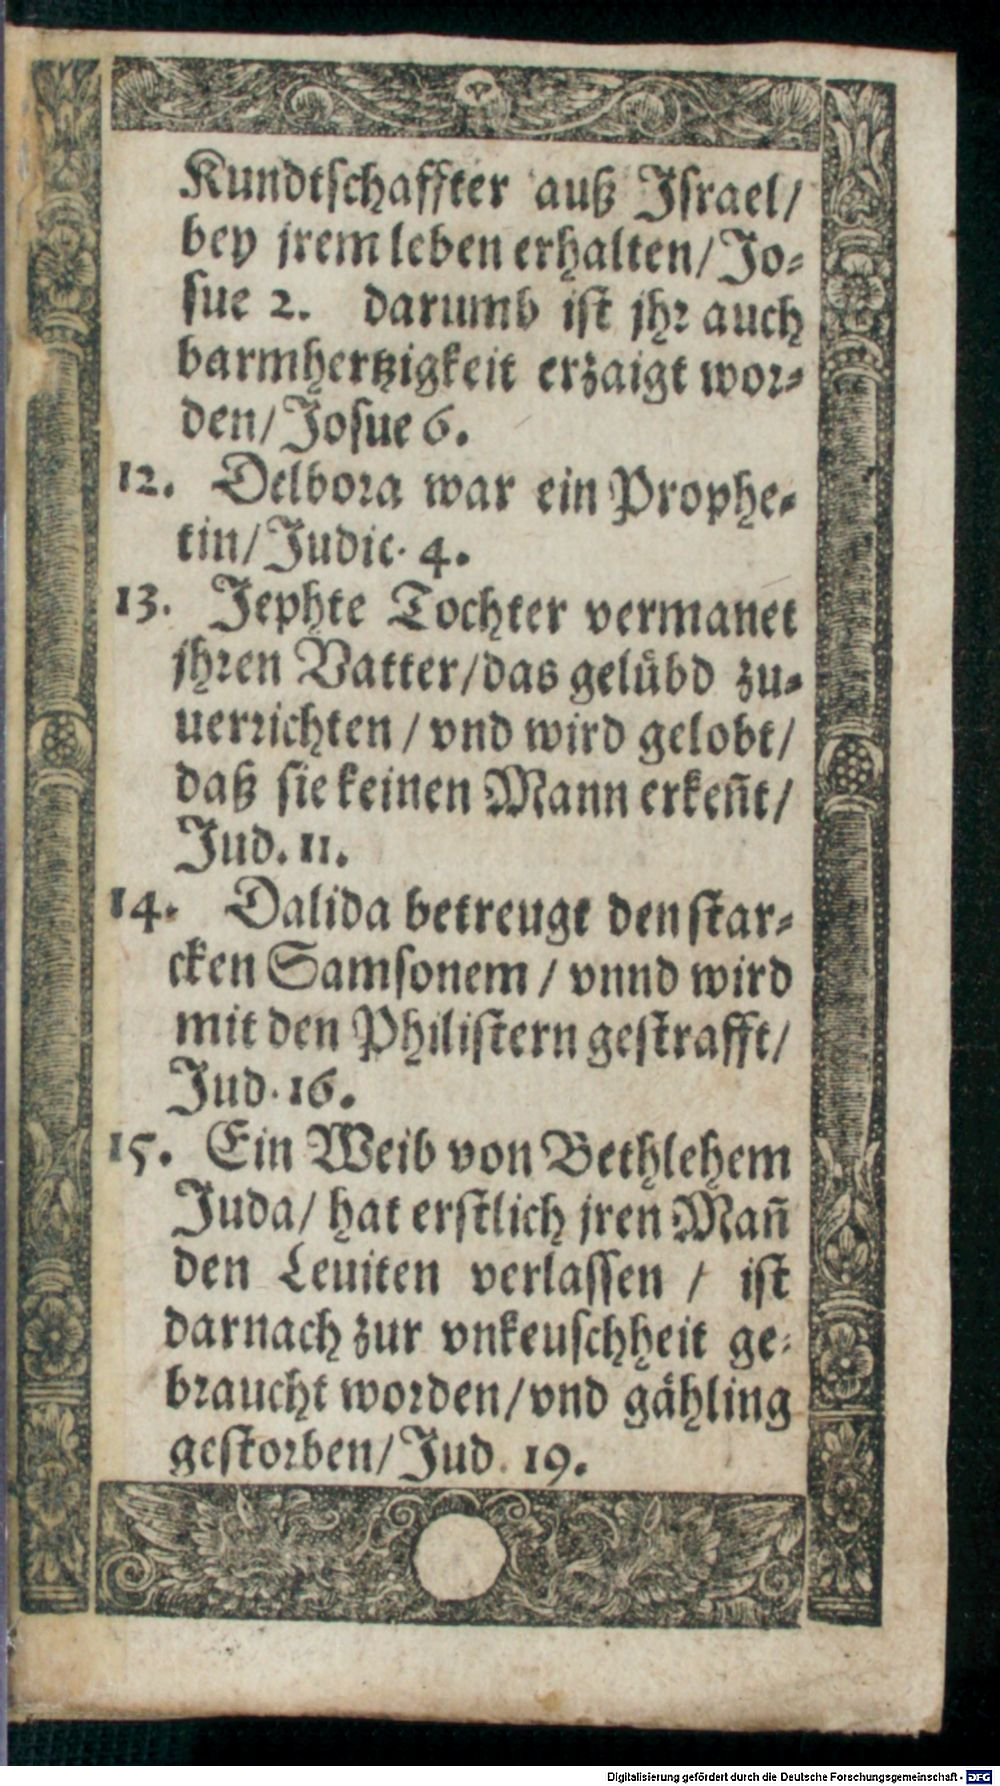 Kundtschaffter auß Israel/
bey jrem leben erhalten/Jo-
sue 2. darumb ist jhr auch
barmhertzigkeit erzaigt wor-
den/Josue 6.
12. Delbora war ein Prophe-
tin/Judic. 4.
13. Jephte Tochter vermanet
jhren Vatter/das gelübd zu-
uerrichten/vnd wird gelobt/
daß sie keinen Mann erkeñt/
Jud. 11.
14. Dalida betreugt den star-
cken Samsonem/vnnd wird
mit den Philistern gestrafft/
Jud. 16.
15. Ein Weib von Bethlehem
Juda/hat erstlich jren Mañ
den Leuiten verlassen / ist
darnach zur vnkeuschheit ge-
braucht worden/vnd gähling
gestorben/Jud. 19.
Digitalisierung gefördert durch die Deutsche Forschungsgemeinschaft - DFG